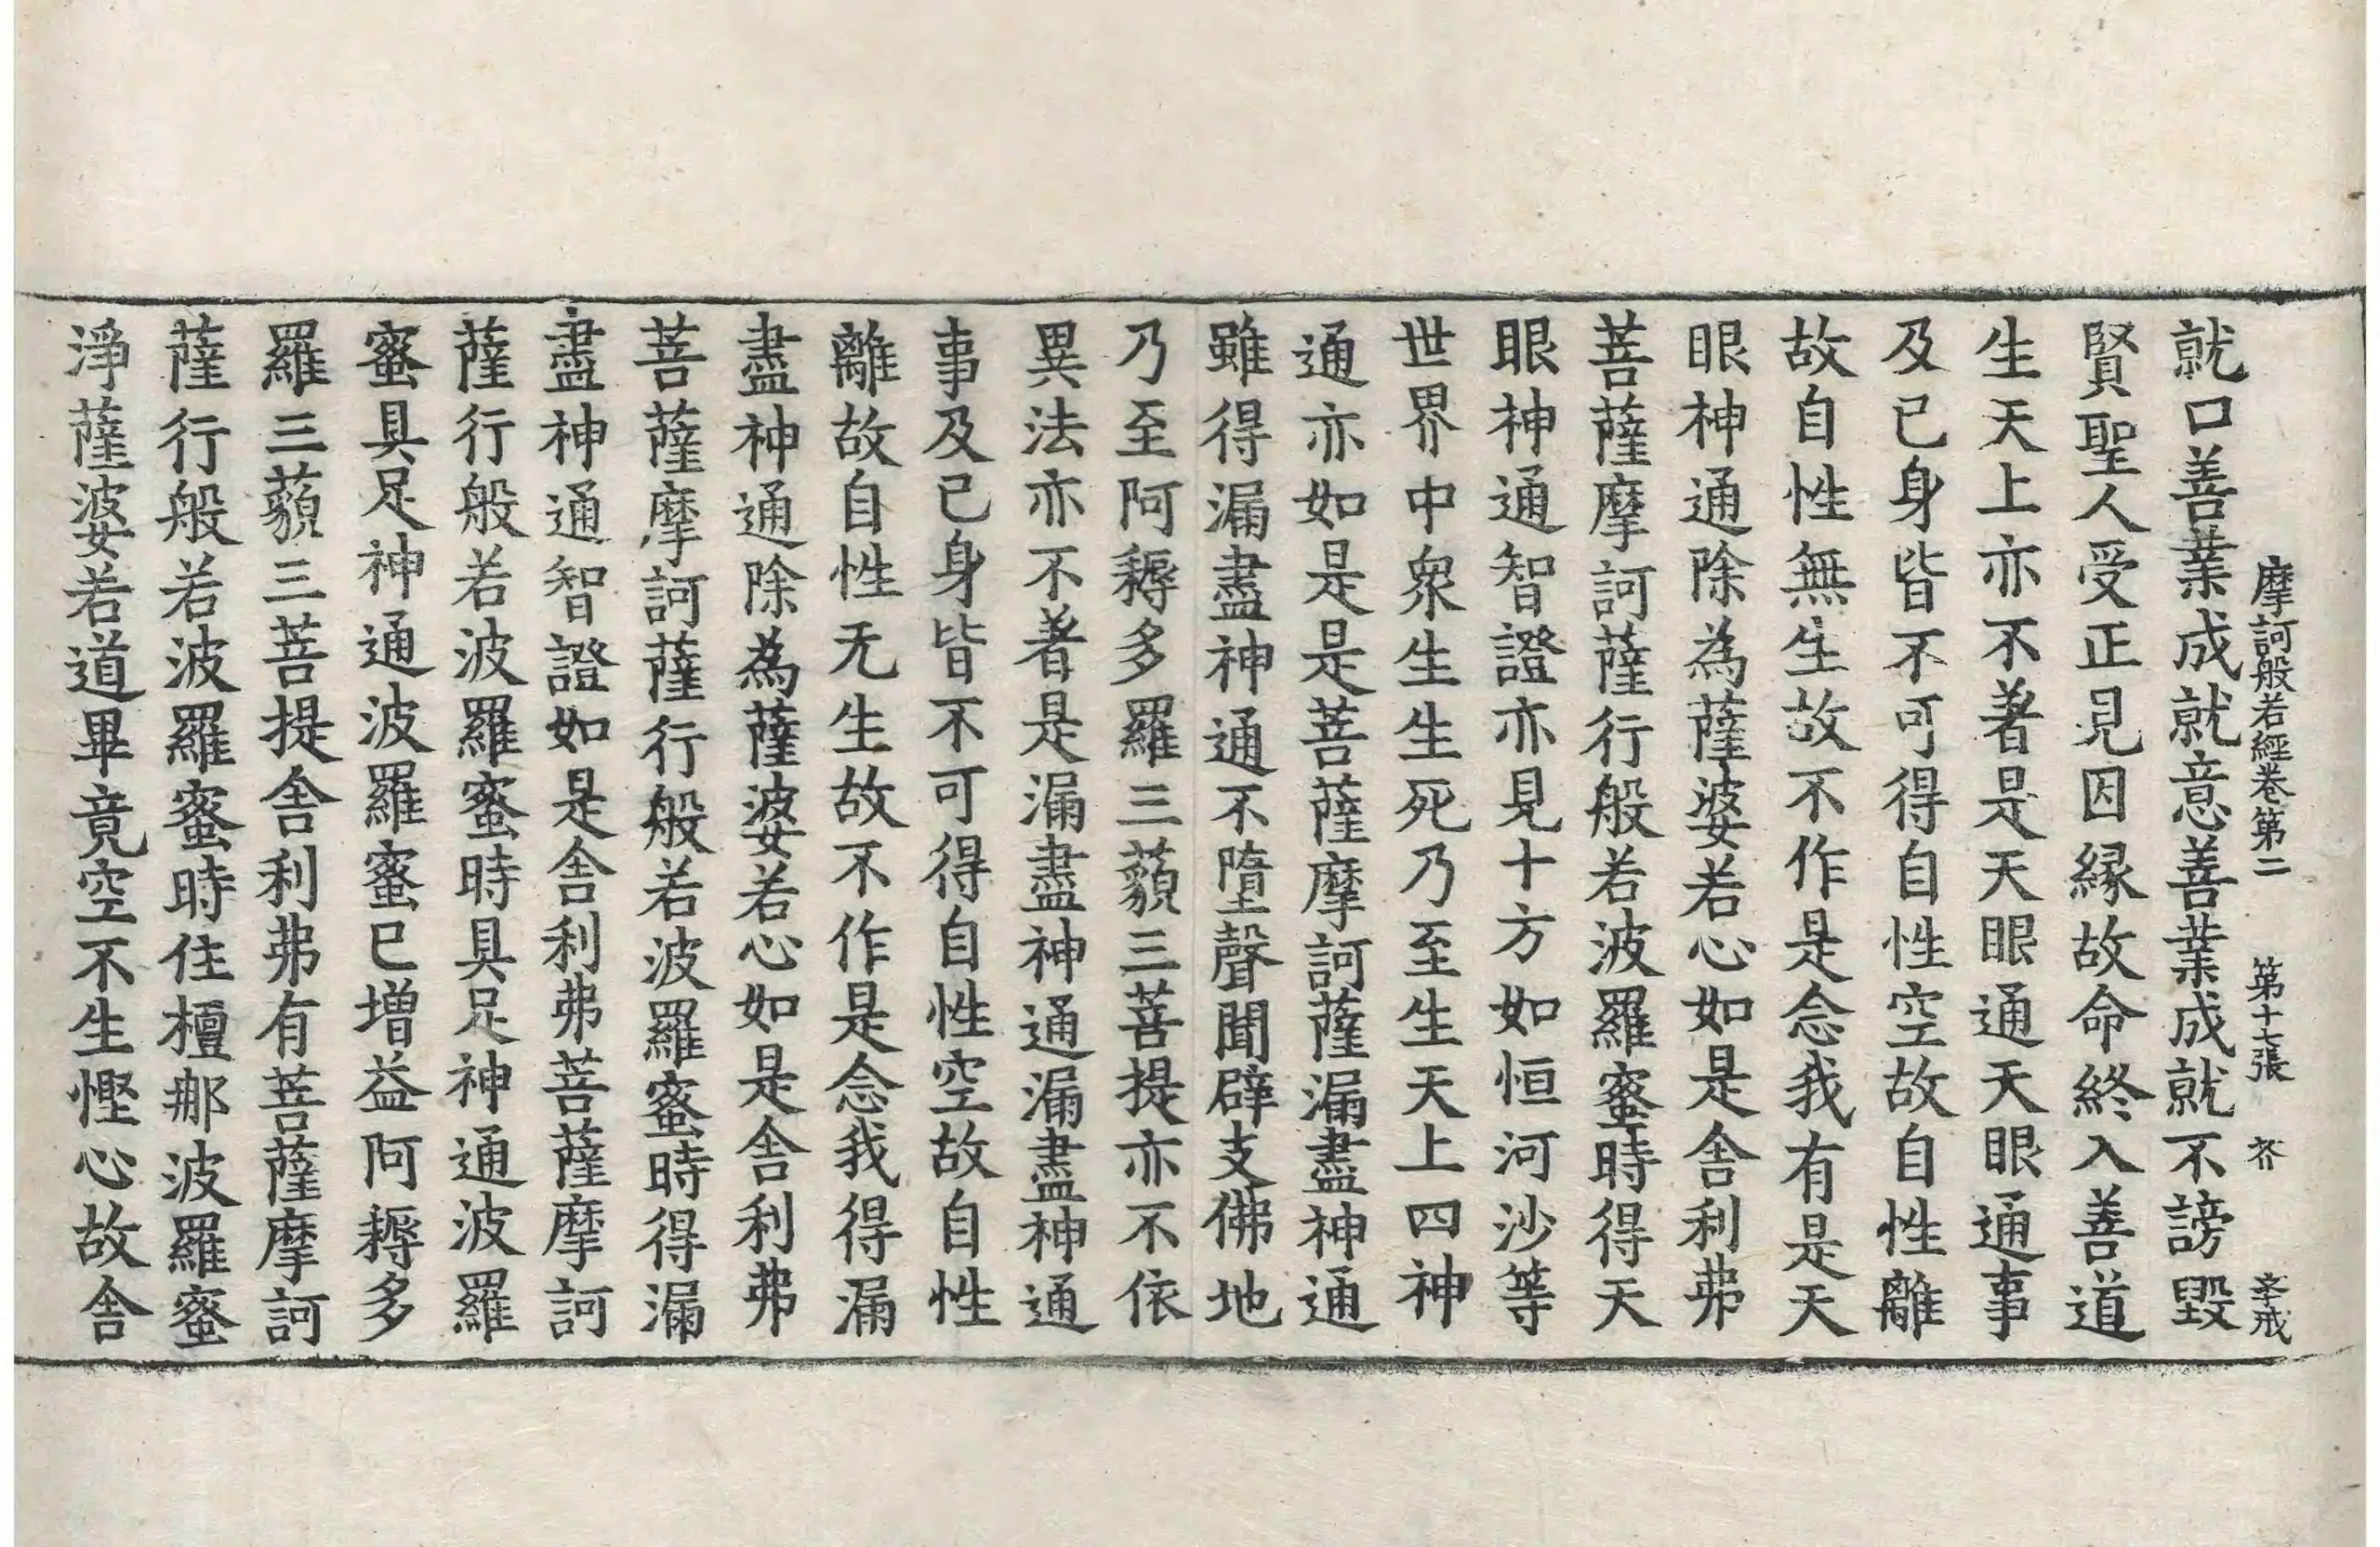 摩訶般若經卷第二 第十七張 芥 孝戒
就口善業成就意善業成就不謗毀
賢聖人受正見因縁故命終入善道
生天上亦不著是天眼通天眼通事
及已身皆不可得自性空故自性離
故自性無生故不作是念我有是天
眼神通除為薩婆若心如是舍利弗
菩薩摩訶薩行般若波羅蜜時得天
眼神通智證亦見十方如恒河沙等
世界中衆生生死乃至生天上四神
通亦如是是菩薩摩訶薩漏盡神通
雖得漏盡神通不墮聲聞辟支佛地
乃至阿耨多羅三藐三菩提亦不依
異法亦不著是漏盡神通漏盡神通
事及已身皆不可得自性空故自性
離故自性无生故不作是念我得漏
盡神通除為薩婆若心如是舍利弗
菩薩摩訶薩行般若波羅蜜時得漏
盡神通智證如是舍利弗菩薩摩訶
薩行般若波羅蜜時具足神通波羅
蜜具足神通波羅蜜已增益阿耨多
羅三藐三菩提舍利弗有菩薩摩訶
薩行般若波羅蜜時住檀那波羅蜜
淨薩婆若道畢竟空不生慳心故舍